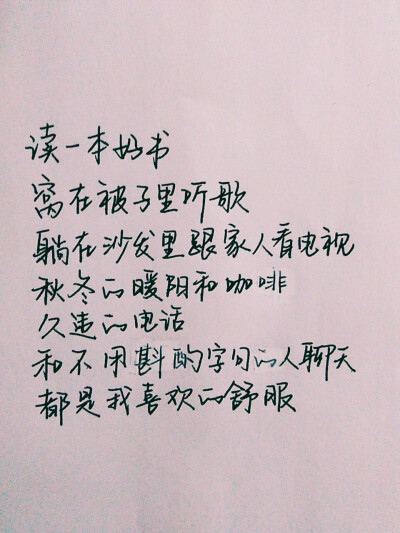 读一本好书
窝在被子里听歌
躺在沙发里跟家人看电视
秋冬的暖阳和咖啡
久违的电话
和不用斟酌字句的人聊天
都是我喜欢的舒服